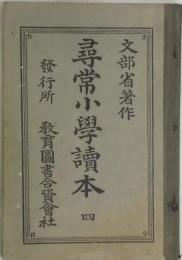 文部省著作
尋常小學讀本 四
發行所 教育圖書合資會社